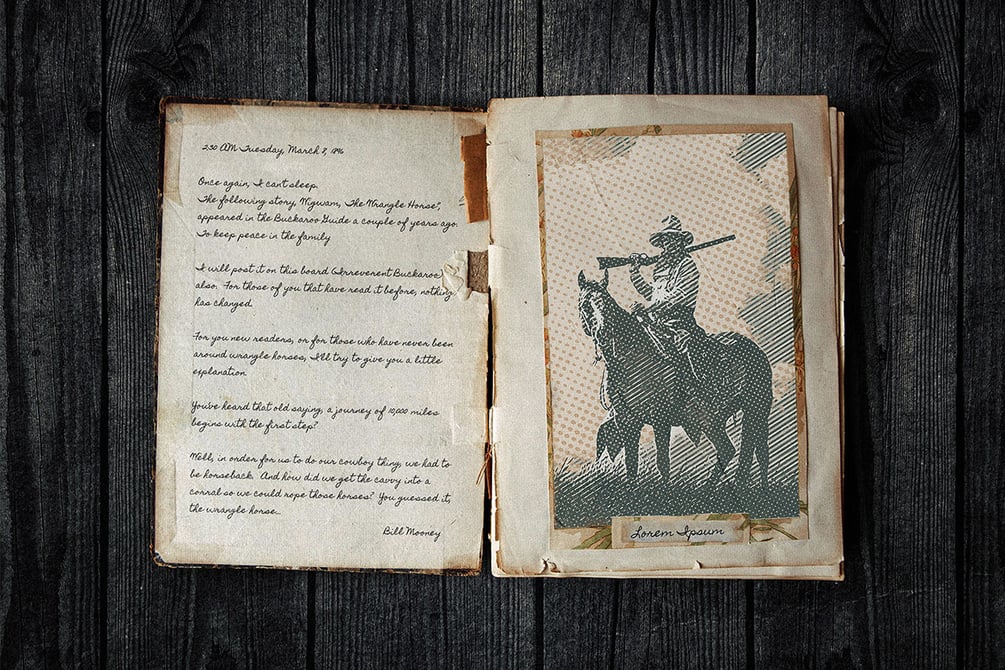 2:30 AM Tuesday, March 8, 1896
Once again, I can't sleep.
The following story, Wigwam, "The Wrangle Horse",
appeared in the Buckaroo Guide a couple of years ago.
To keep peace in the family
I will post it on this board (Irreverent Buckaroo)
also. For those of you that have read it before, nothing
has changed.
For you new readers, or for those who have never been
around wrangle horses, I'll try to give you a little
explanation.
You've heard that old saying, a journey of 10,000 miles
begins with the first step?
Well, in order for us to do our cowboy thing, we had to
be horseback. And how did we get the cavvy into a
corral so we could rope those horses? You guessed it,
the wrangle horse...
Bill Mooney
Lorem Ipsum